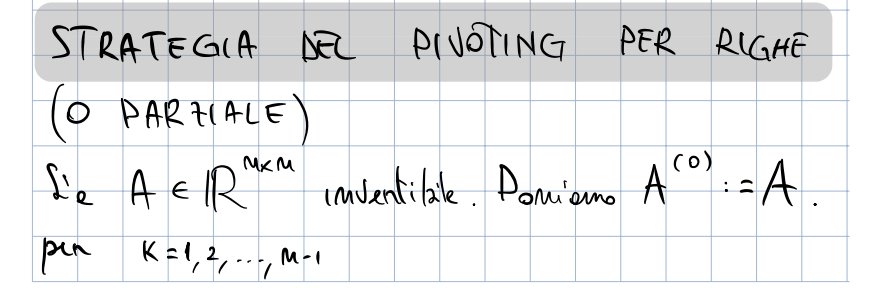 STRATEGIA DEL PIVOTING PER RIGHE
(O PARZIALE)
Sia A ∈ ℝ^{n×n} invertibile. Poniamo A^{(0)} := A.
per K = 1, 2, ..., n-1